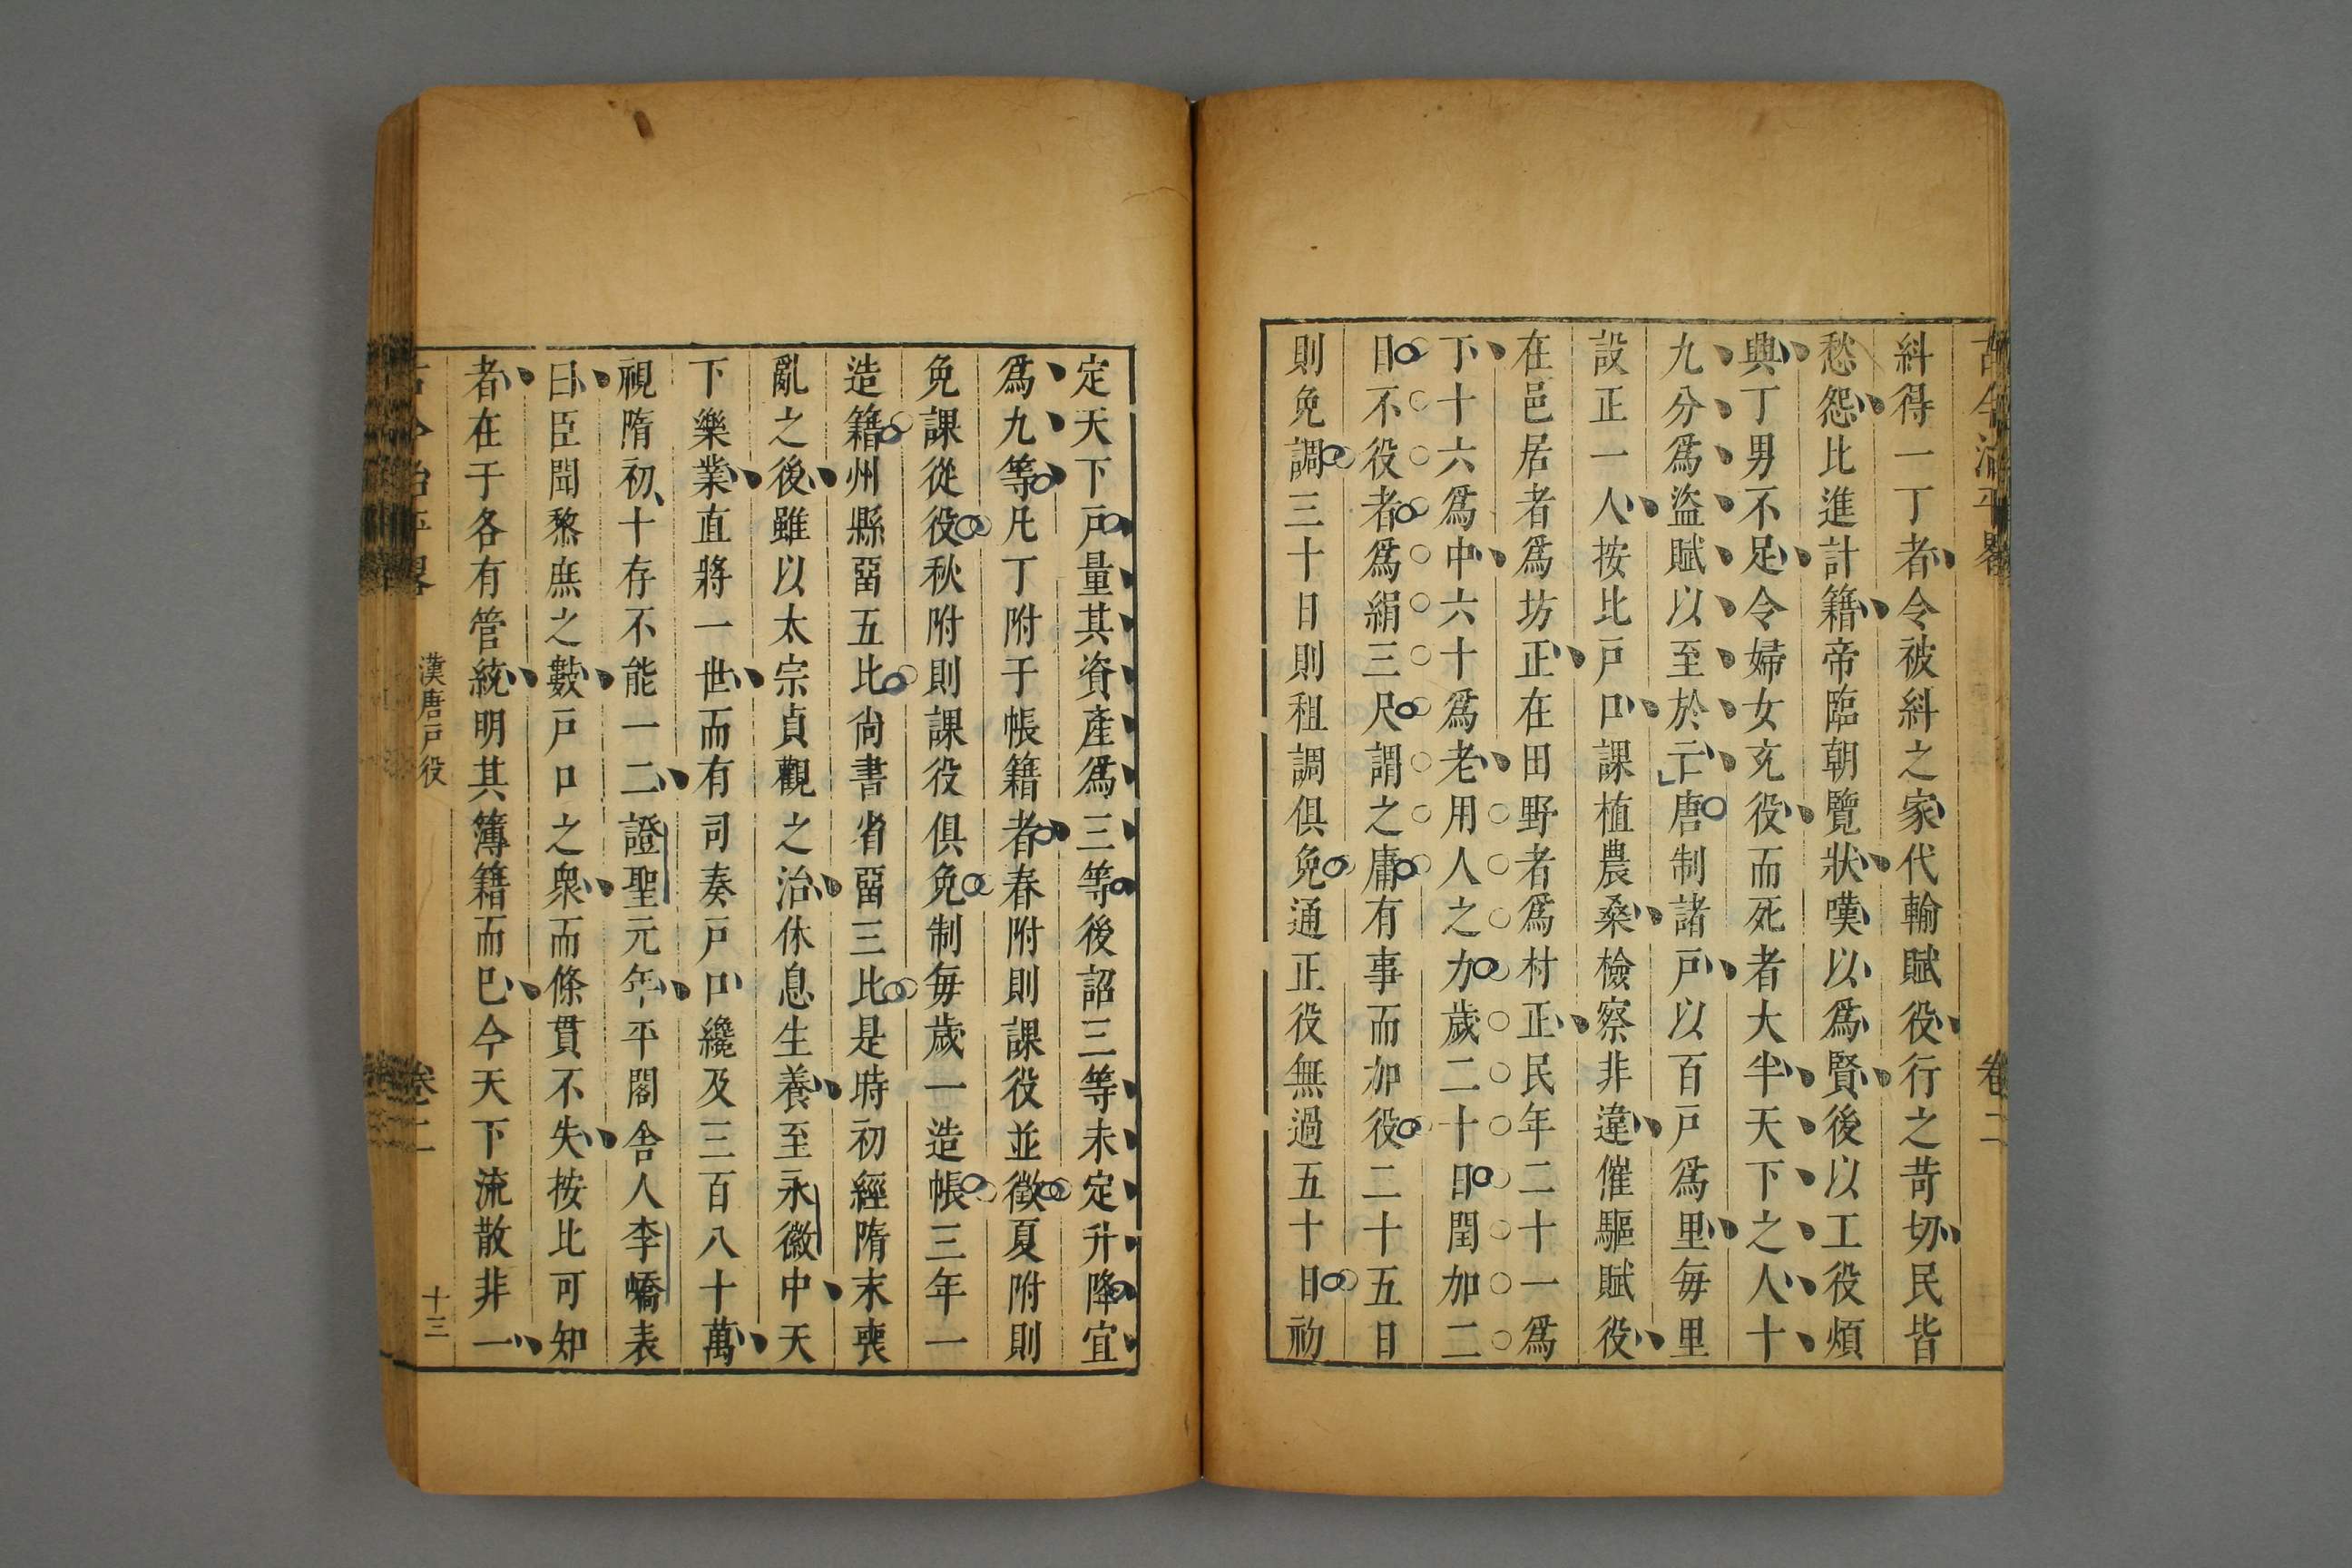 古今治平畧 卷二
糾得一丁者令被糾之家代輸賦役行之苛切民皆
愁怨比進計籍帝臨朝覽狀嘆以爲賢後以工役煩
興丁男不足令婦女充役而死者大半天下之人十
九分爲盜賦以至於亡唐制諸戸以百戸爲里每里
設正一人按比戸口課植農桑檢察非違催驅賦役
在邑居者爲坊正在田野者爲村正民年二十一爲
丁十六爲中六十爲老用人之力歲二十日閏加二
日不役者爲絹三尺謂之庸有事而加役二十五日
則免調三十日則租調俱免通正役無過五十日初
定天下戸量其資產爲三等後詔三等未定升降宜
爲九等凡丁附于帳籍者春附則課役並徵夏附則
免課從役秋附則課役俱免制每歲一造帳三年一
造籍州縣畱五比尙書省畱三比是時初經隋末喪
亂之後雖以太宗貞觀之治休息生養至永徽中天
下樂業直將一世而有司奏戸口纔及三百八十萬
視隋初十存不能一二證聖元年平閣舍人李嶠表
曰臣聞黎庶之數戸口之衆而條貫不失按比可知
者在于各有管統明其簿籍而巳今天下流散非一
古今治平畧 漢唐戸役 卷二 十三